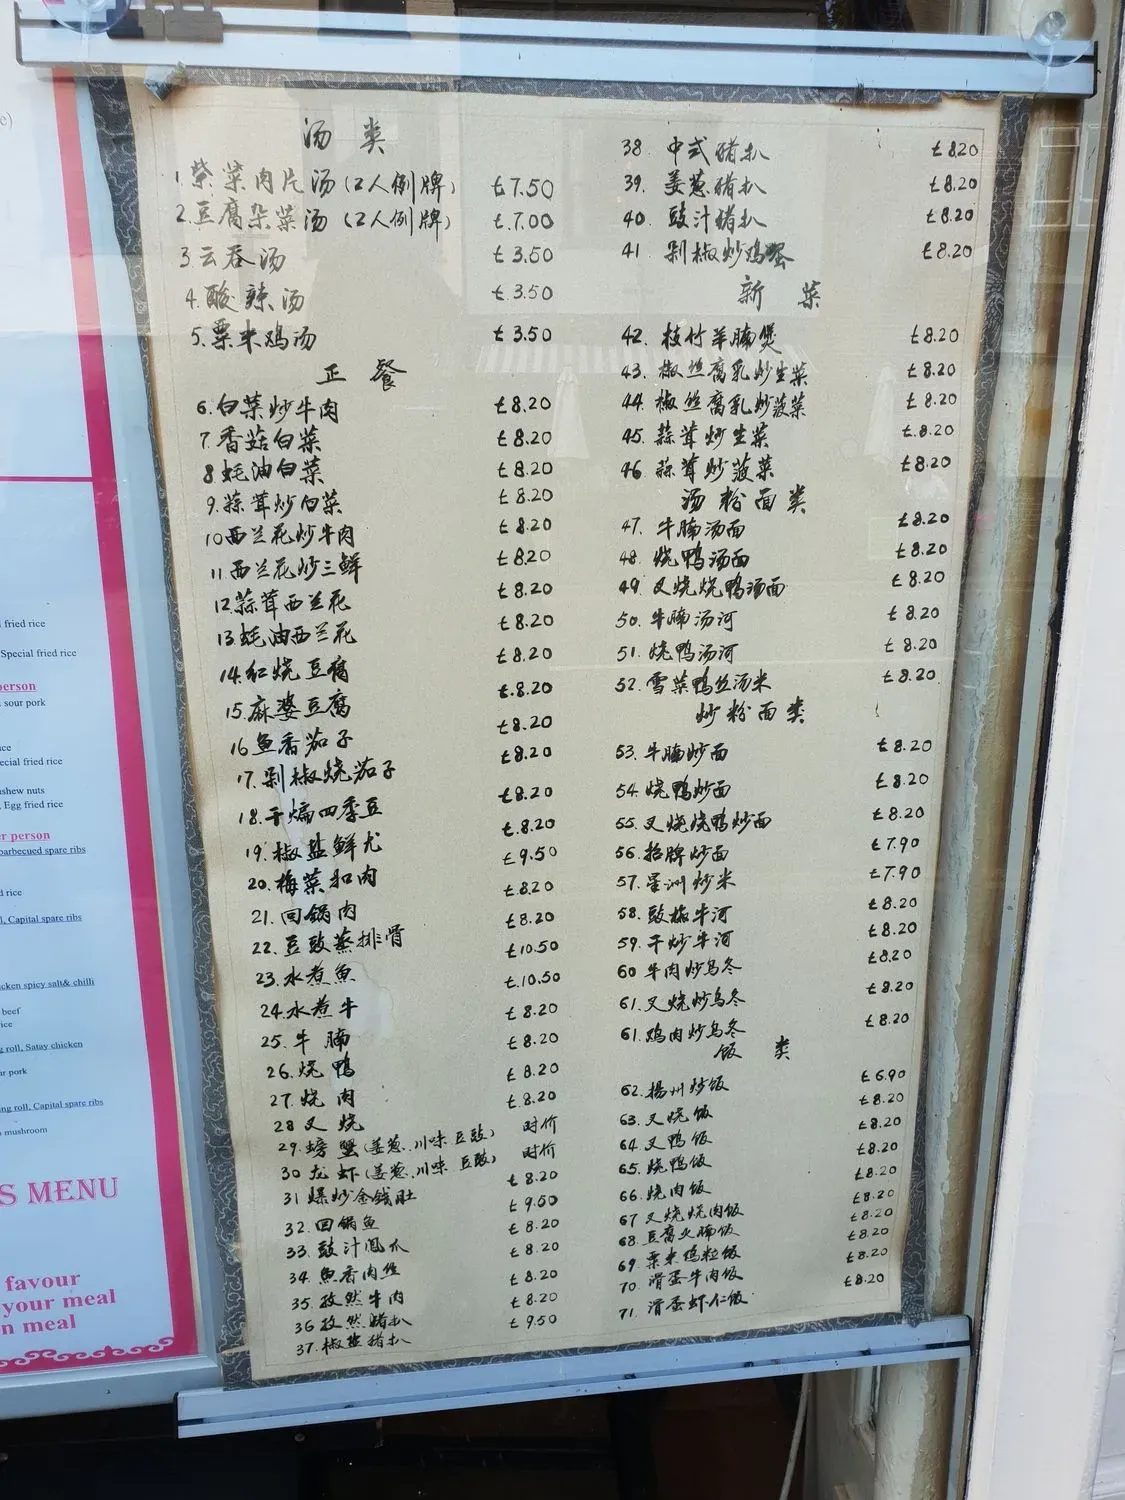 e)
fried rice
Special fried rice
person
sour pork
ce
ecial fried rice
shew nuts
, Egg fried rice
er person
barbecued spare ribs
d rice
l, Capital spare ribs
cken spicy salt& chilli
beef
rice
g roll, Satay chicken
ar pork
ing roll, Capital spare ribs
mushroom
S MENU
favour
your meal
n meal
汤 类
1.紫菜肉片汤(2人例牌) £7.50
2.豆腐杂菜汤(2人例牌) £7.00
3.云吞汤 £3.50
4.酸辣汤 £3.50
5.粟米鸡汤 £3.50
正 餐
6.白菜炒牛肉 £8.20
7.香菇白菜 £8.20
8.蚝油白菜 £8.20
9.蒜茸炒白菜 £8.20
10西兰花炒牛肉 £8.20
11.西兰花炒三鲜 £8.20
12.蒜茸西兰花 £8.20
13.蚝油西兰花 £8.20
14.红烧豆腐 £8.20
15.麻婆豆腐 £8.20
16鱼香茄子 £8.20
17.剁椒烧茄子 £8.20
18.干煸四季豆 £8.20
19.椒盐鲜尤 £8.20
20.梅菜扣肉 £9.50
21.回锅肉 £8.20
22.豆豉蒸排骨 £8.20
23.水煮鱼 £10.50
24.水煮牛 £10.50
25.牛腩 £8.20
26.烧鸭 £8.20
27.烧肉 £8.20
28叉烧 £8.20
29.螃蟹(姜葱.川味.豆豉) 时价
30龙虾(姜葱.川味 豆豉) 时价
31爆炒金钱肚 £8.20
32.回锅鱼 £9.50
33.豉汁凤爪 £8.20
34.鱼香肉丝 £8.20
35.孜然牛肉 £8.20
36孜然猪扒 £8.20
37.椒盐猪扒 £9.50
38.中式猪扒 £8.20
39.姜葱猪扒 £8.20
40.豉汁猪扒 £8.20
41.剁椒炒鸡蛋 £8.20
新 菜
42.枝竹羊腩煲 £8.20
43.椒丝腐乳炒生菜 £8.20
44.椒丝腐乳炒菠菜 £8.20
45.蒜茸炒生菜 £8.20
46.蒜茸炒菠菜 £8.20
汤粉面类
47.牛腩汤面 £8.20
48.烧鸭汤面 £8.20
49.叉烧烧鸭汤面 £8.20
50.牛腩汤河 £8.20
51.烧鸭汤河 £8.20
52.雪菜鸭丝汤米 £8.20
炒粉面类
53.牛腩炒面 £8.20
54.烧鸭炒面 £8.20
55.叉烧烧鸭炒面 £8.20
56.招牌炒面 £7.90
57.星洲炒米 £7.90
58.豉椒牛河 £8.20
59.干炒牛河 £8.20
60牛肉炒乌冬 £8.20
61.叉烧炒乌冬 £8.20
61.鸡肉炒乌冬 £8.20
饭 类
62.揚州炒饭 £6.90
63.叉烧饭 £8.20
64.叉鸭饭 £8.20
65.烧鸭饭 £8.20
66.烧肉饭 £8.20
67叉烧烧肉饭 £8.20
68.豆腐火腩饭 £8.20
69.粟米鸡粒饭 £8.20
70.滑蛋牛肉饭 £8.20
71.滑蛋虾仁饭 £8.20